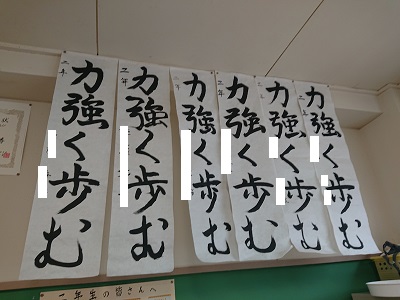 力強く歩む
二年
力強く歩む
二年
力強く歩む
二年
力強く歩む
二年
力強く歩む
二年
力強く歩む
二年
二年生の皆さんへ